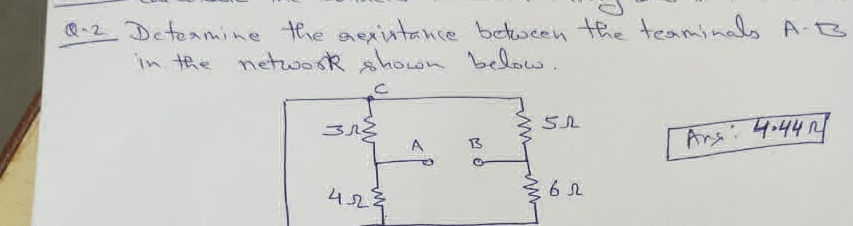 Q.2 Determine the resistance between the terminals A-B
in the network shown below.
C
3Ω
5Ω
A
B
Ans: 4.44Ω
4Ω
6Ω